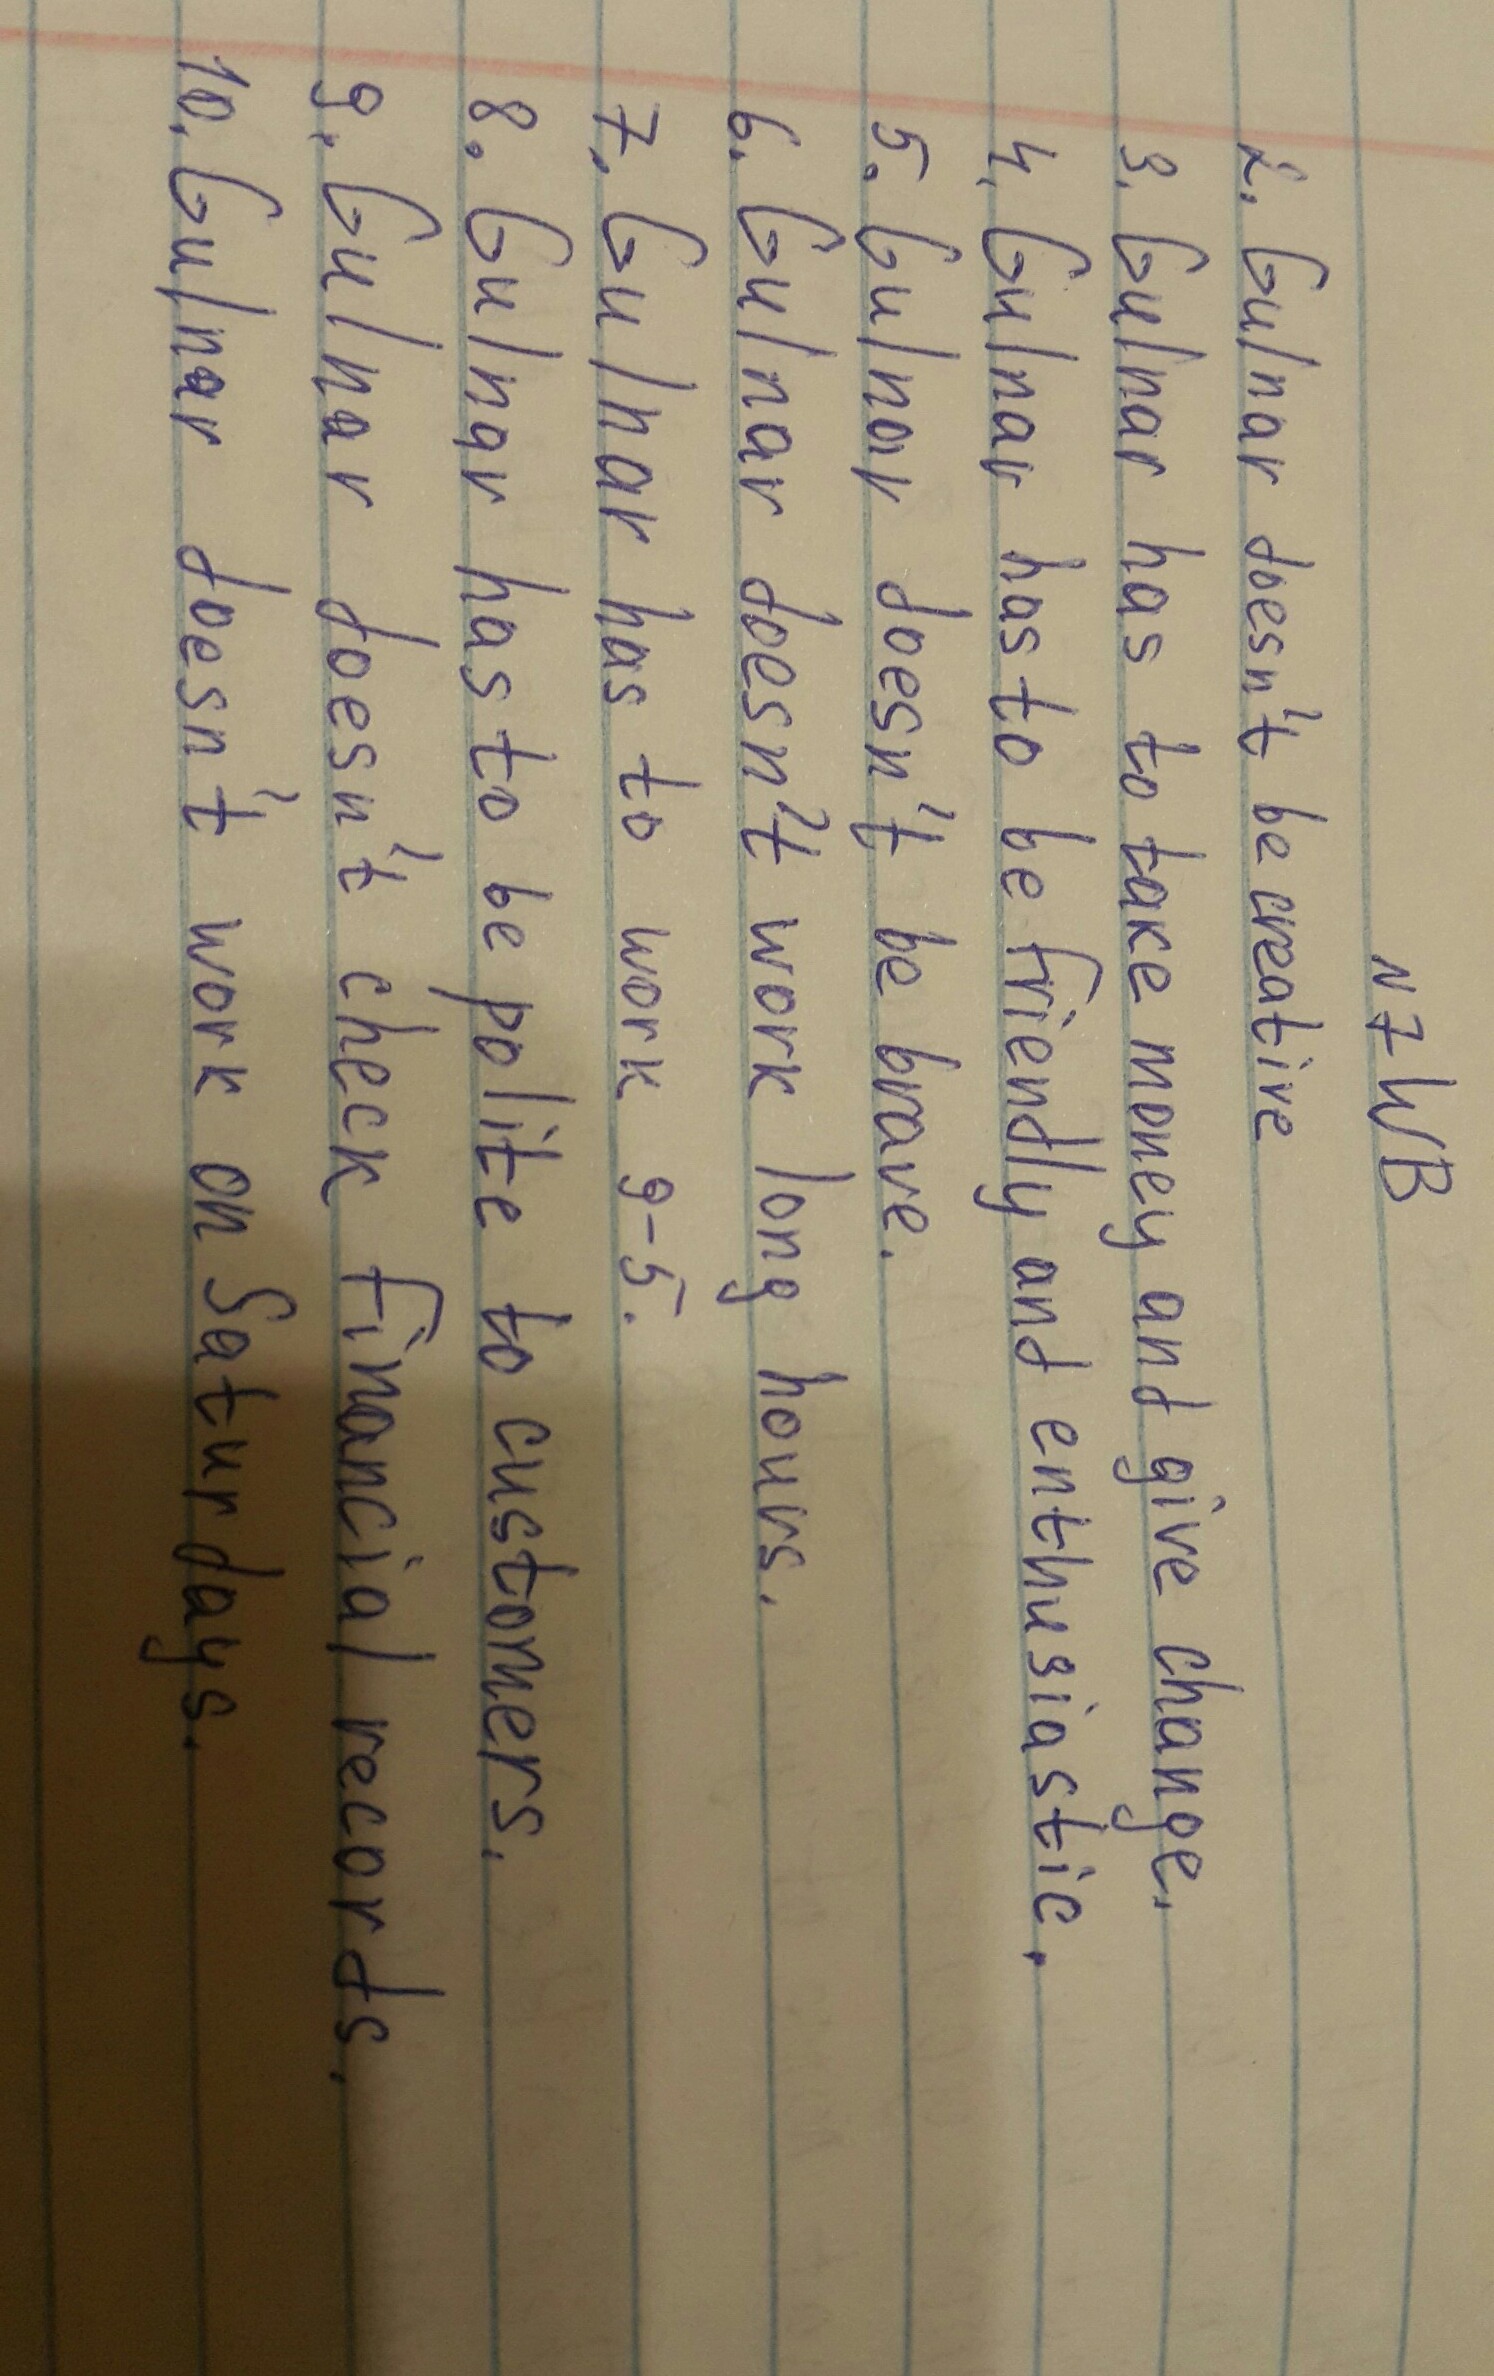 N7 WB
2. Gulnar doesn't be creative
3. Gulnar has to take money and give change.
4. Gulnar has to be friendly and enthusiastic.
5. Gulnar doesn't be brave.
6. Gulnar doesn't work long hours.
7. Gulnar has to work 9-5.
8. Gulnar has to be polite to customers.
9. Gulnar doesn't check financial records.
10. Gulnar doesn't work on Saturdays.